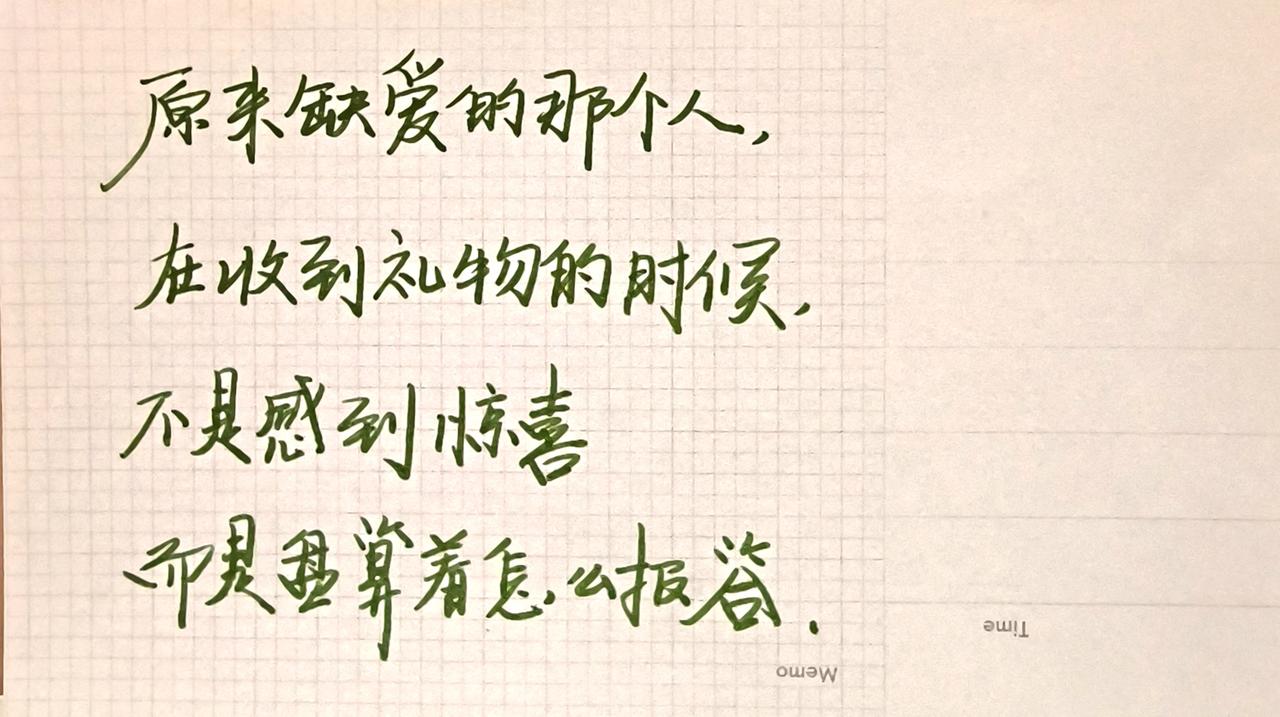 原来缺爱的那个人,
在收到礼物的时候,
不是感到惊喜
而是盘算着怎么报答.
Time
Memo